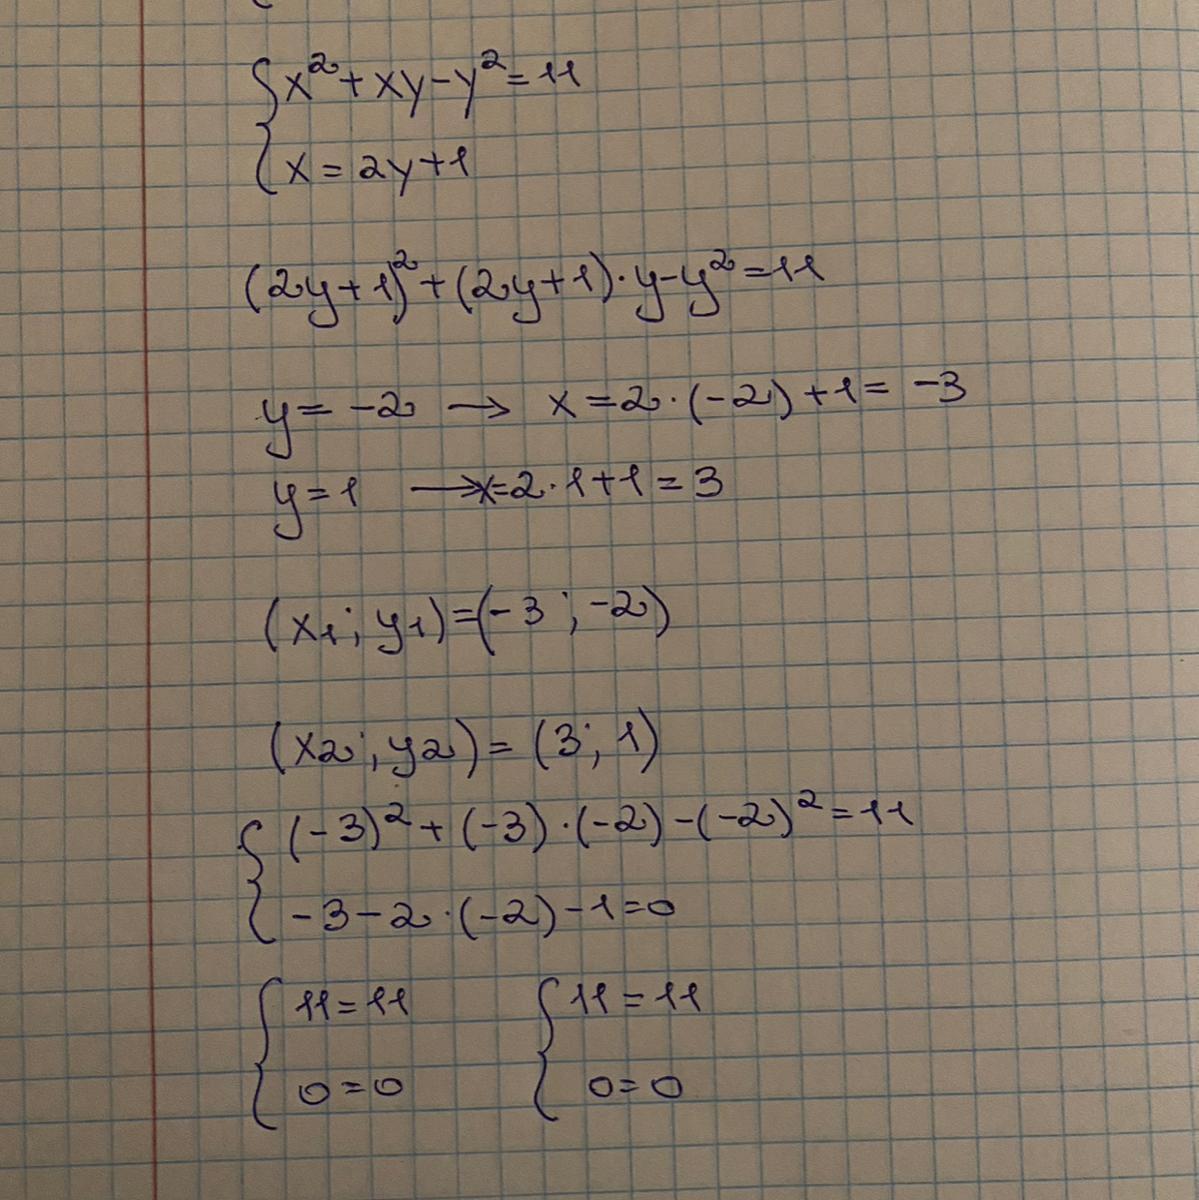 {x²+xy-y²=11
{x=2y+1
(2y+1)²+(2y+1)·y-y²=11
y=-2 → x=2·(-2)+1=-3
y=1 → x=2·1+1=3
(x1; y1)=(-3; -2)
(x2; y2)=(3; 1)
{(-3)²+(-3)·(-2)-(-2)²=11
{-3-2·(-2)-1=0
{11=11 {11=11
{0=0 {0=0